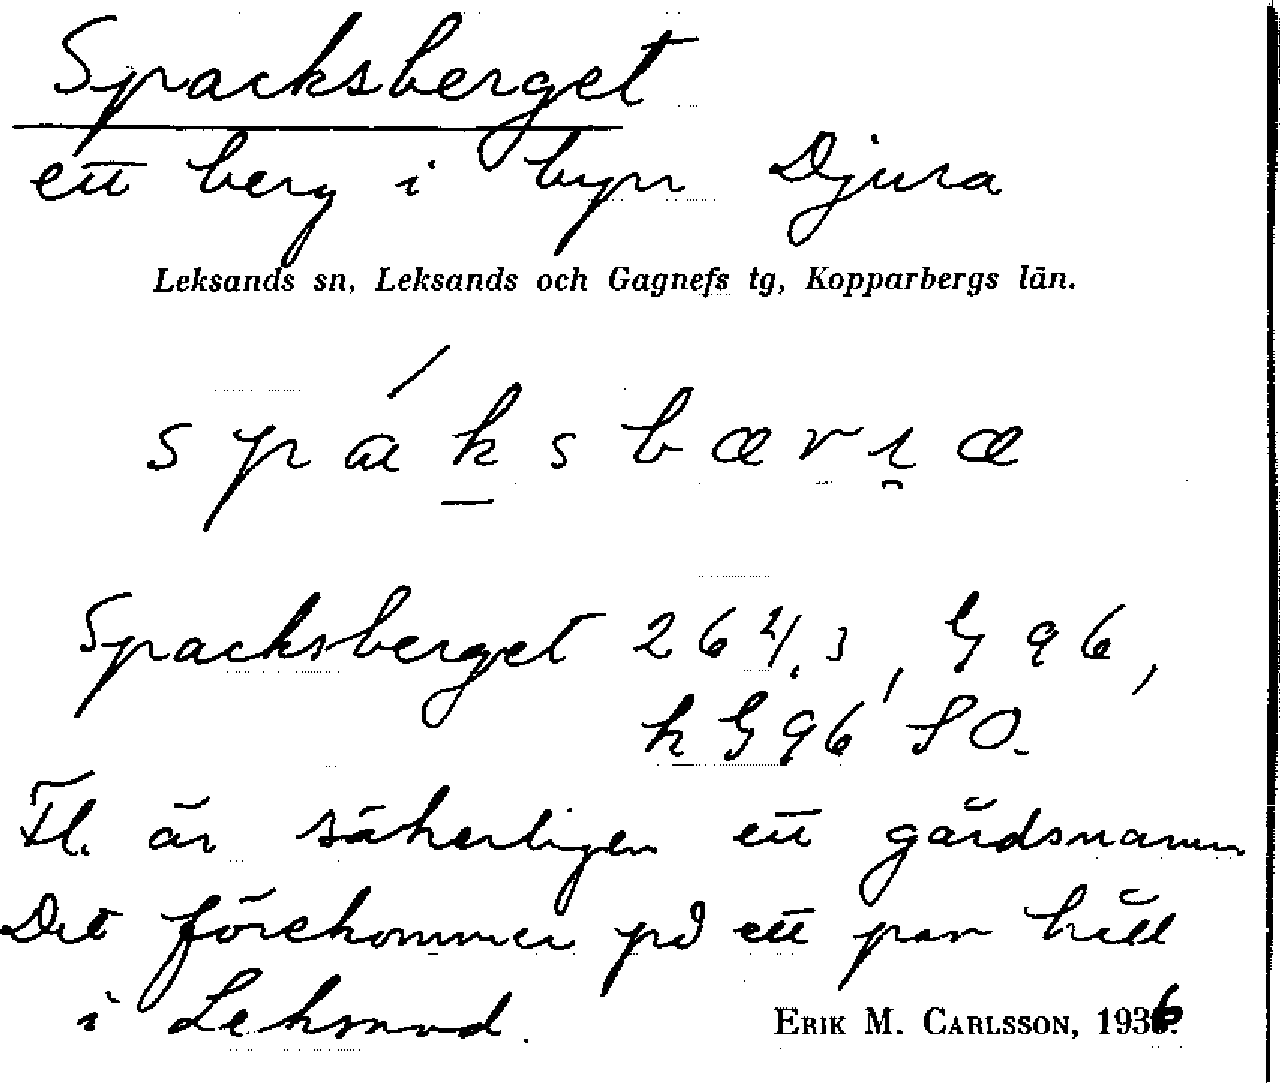 Spacksberget
ett berg i byn Djura
Leksands sn, Leksands och Gagnefs tg, Kopparbergs län.
spáksbæri̯æ
Spacksberget 264,3, G 96,
k G 96 SO.
Fl. är säkerligen ett gårdsnamn
Det förekommer på ett par håll
i Leksand.
ERIK M. CARLSSON, 1936.